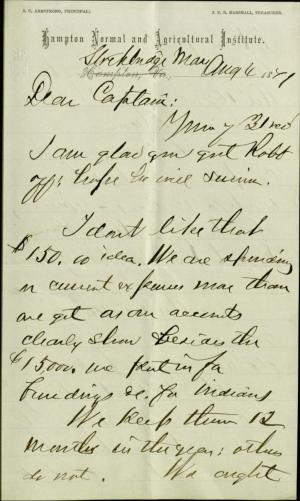 S. C. ARMSTRONG, PRINCIPAL. J. F. B. MARSHALL, TREASURER.
Hampton Normal and Agricultural Institute.
Stockbridge Mass
Hampton, Va., Aug 6 1881
Dear Captain:
Yours of 31 recd
I am glad you got Robt
off: hope he will survive.
I don't like that
$150. idea. We are spending
in current expenses more than
we get as our accounts
clearly show besides the
$15,000. we put in for
buildings &c. for Indians
We keep them 12
months in the year: others
do not. We ought